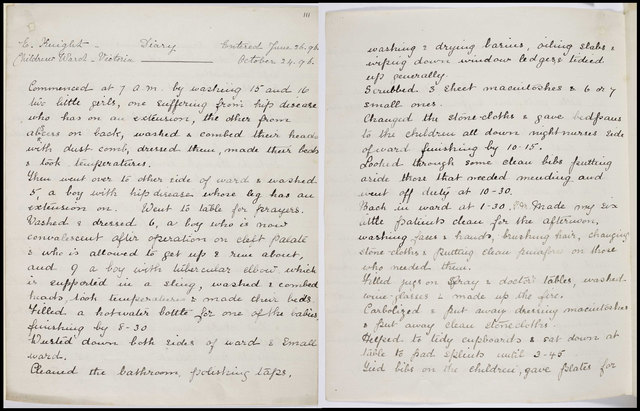 111
E. Knight - Diary. Entered June 26.96.
Childrens Ward - Victoria October 24.96.
Commenced at 7 a.m. by washing 15 and 16
two little girls, one suffering from hip disease
who has on an extension, the other from
abcess on back, washed & combed their heads
with dust comb, dressed them, made their beds
& took temperatures.
Then went over to other side of ward & washed
5, a boy with hip disease whose leg has an
extension on. Went to table for prayers.
Washed & dressed 6, a boy who is now
convalescent after operation on cleft palate
& who is allowed to get up & run about,
and 9 a boy with tubercular elbow which
is supported in a sling, washed & combed
heads, took temperatures & made their beds.
Filled a hotwater bottle for one of the babies
finishing by 8-30
Dusted down both sides of ward & small
ward.
Cleaned the bathroom, polishing taps,
washing & drying basins, oiling slabs &
wiping down window ledges tidied
up generally.
Scrubbed 3 sheet macintoshes & 6 or 7
small ones.
Changed the stone-cloths & gave bedpans
to the children all down nightnurses side
of ward finishing by 10-15.
Looked through some clean bibs putting
aside those that needed mending and
went off duty at 10-30.
Back in ward at 1-30 P.M. Made my six
little patients clean for the afternoon,
washing faces & hands, brushing hair, changing
stone-cloths & putting clean pinafores on those
who needed them.
Filled jugs on spray & doctors tables, washed
wine-glasses & made up the fire.
Carbolized & put away dressing macintoshes
& put away clean stonecloths.
Helped to tidy cupboards & sat down at
table to pad splints until 2-45
Tied bibs on the children, gave plates for